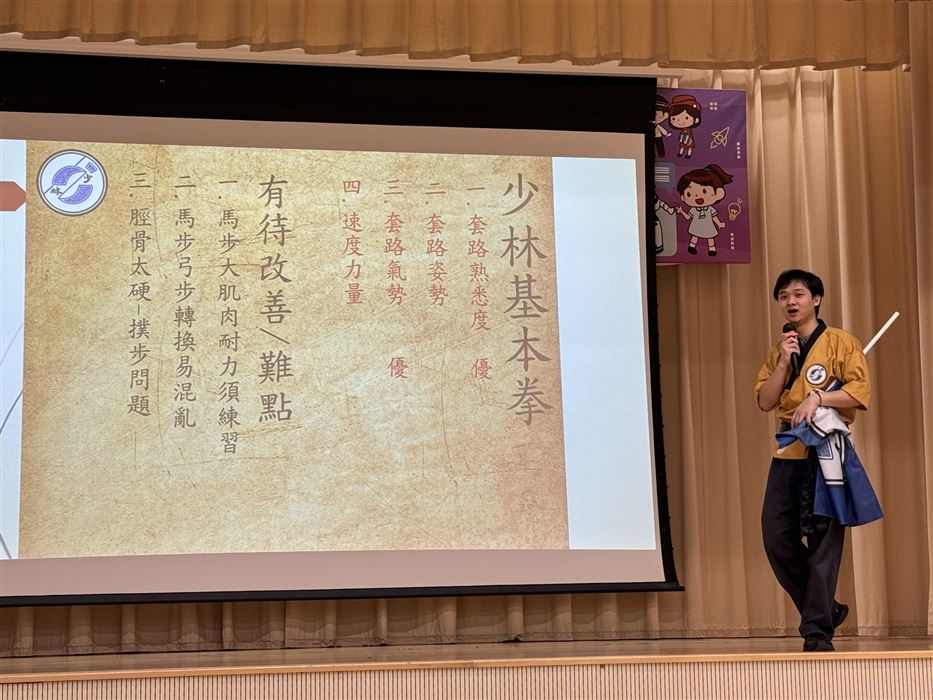 少林基本拳
一.套路熟悉度 優
二.套路姿勢
三.套路氣勢 優
四.速度力量
有待改善/難點
一.馬步大肌肉耐力須練習
二.馬步弓步轉換易混亂
三.脛骨太硬-撲步問題
少林